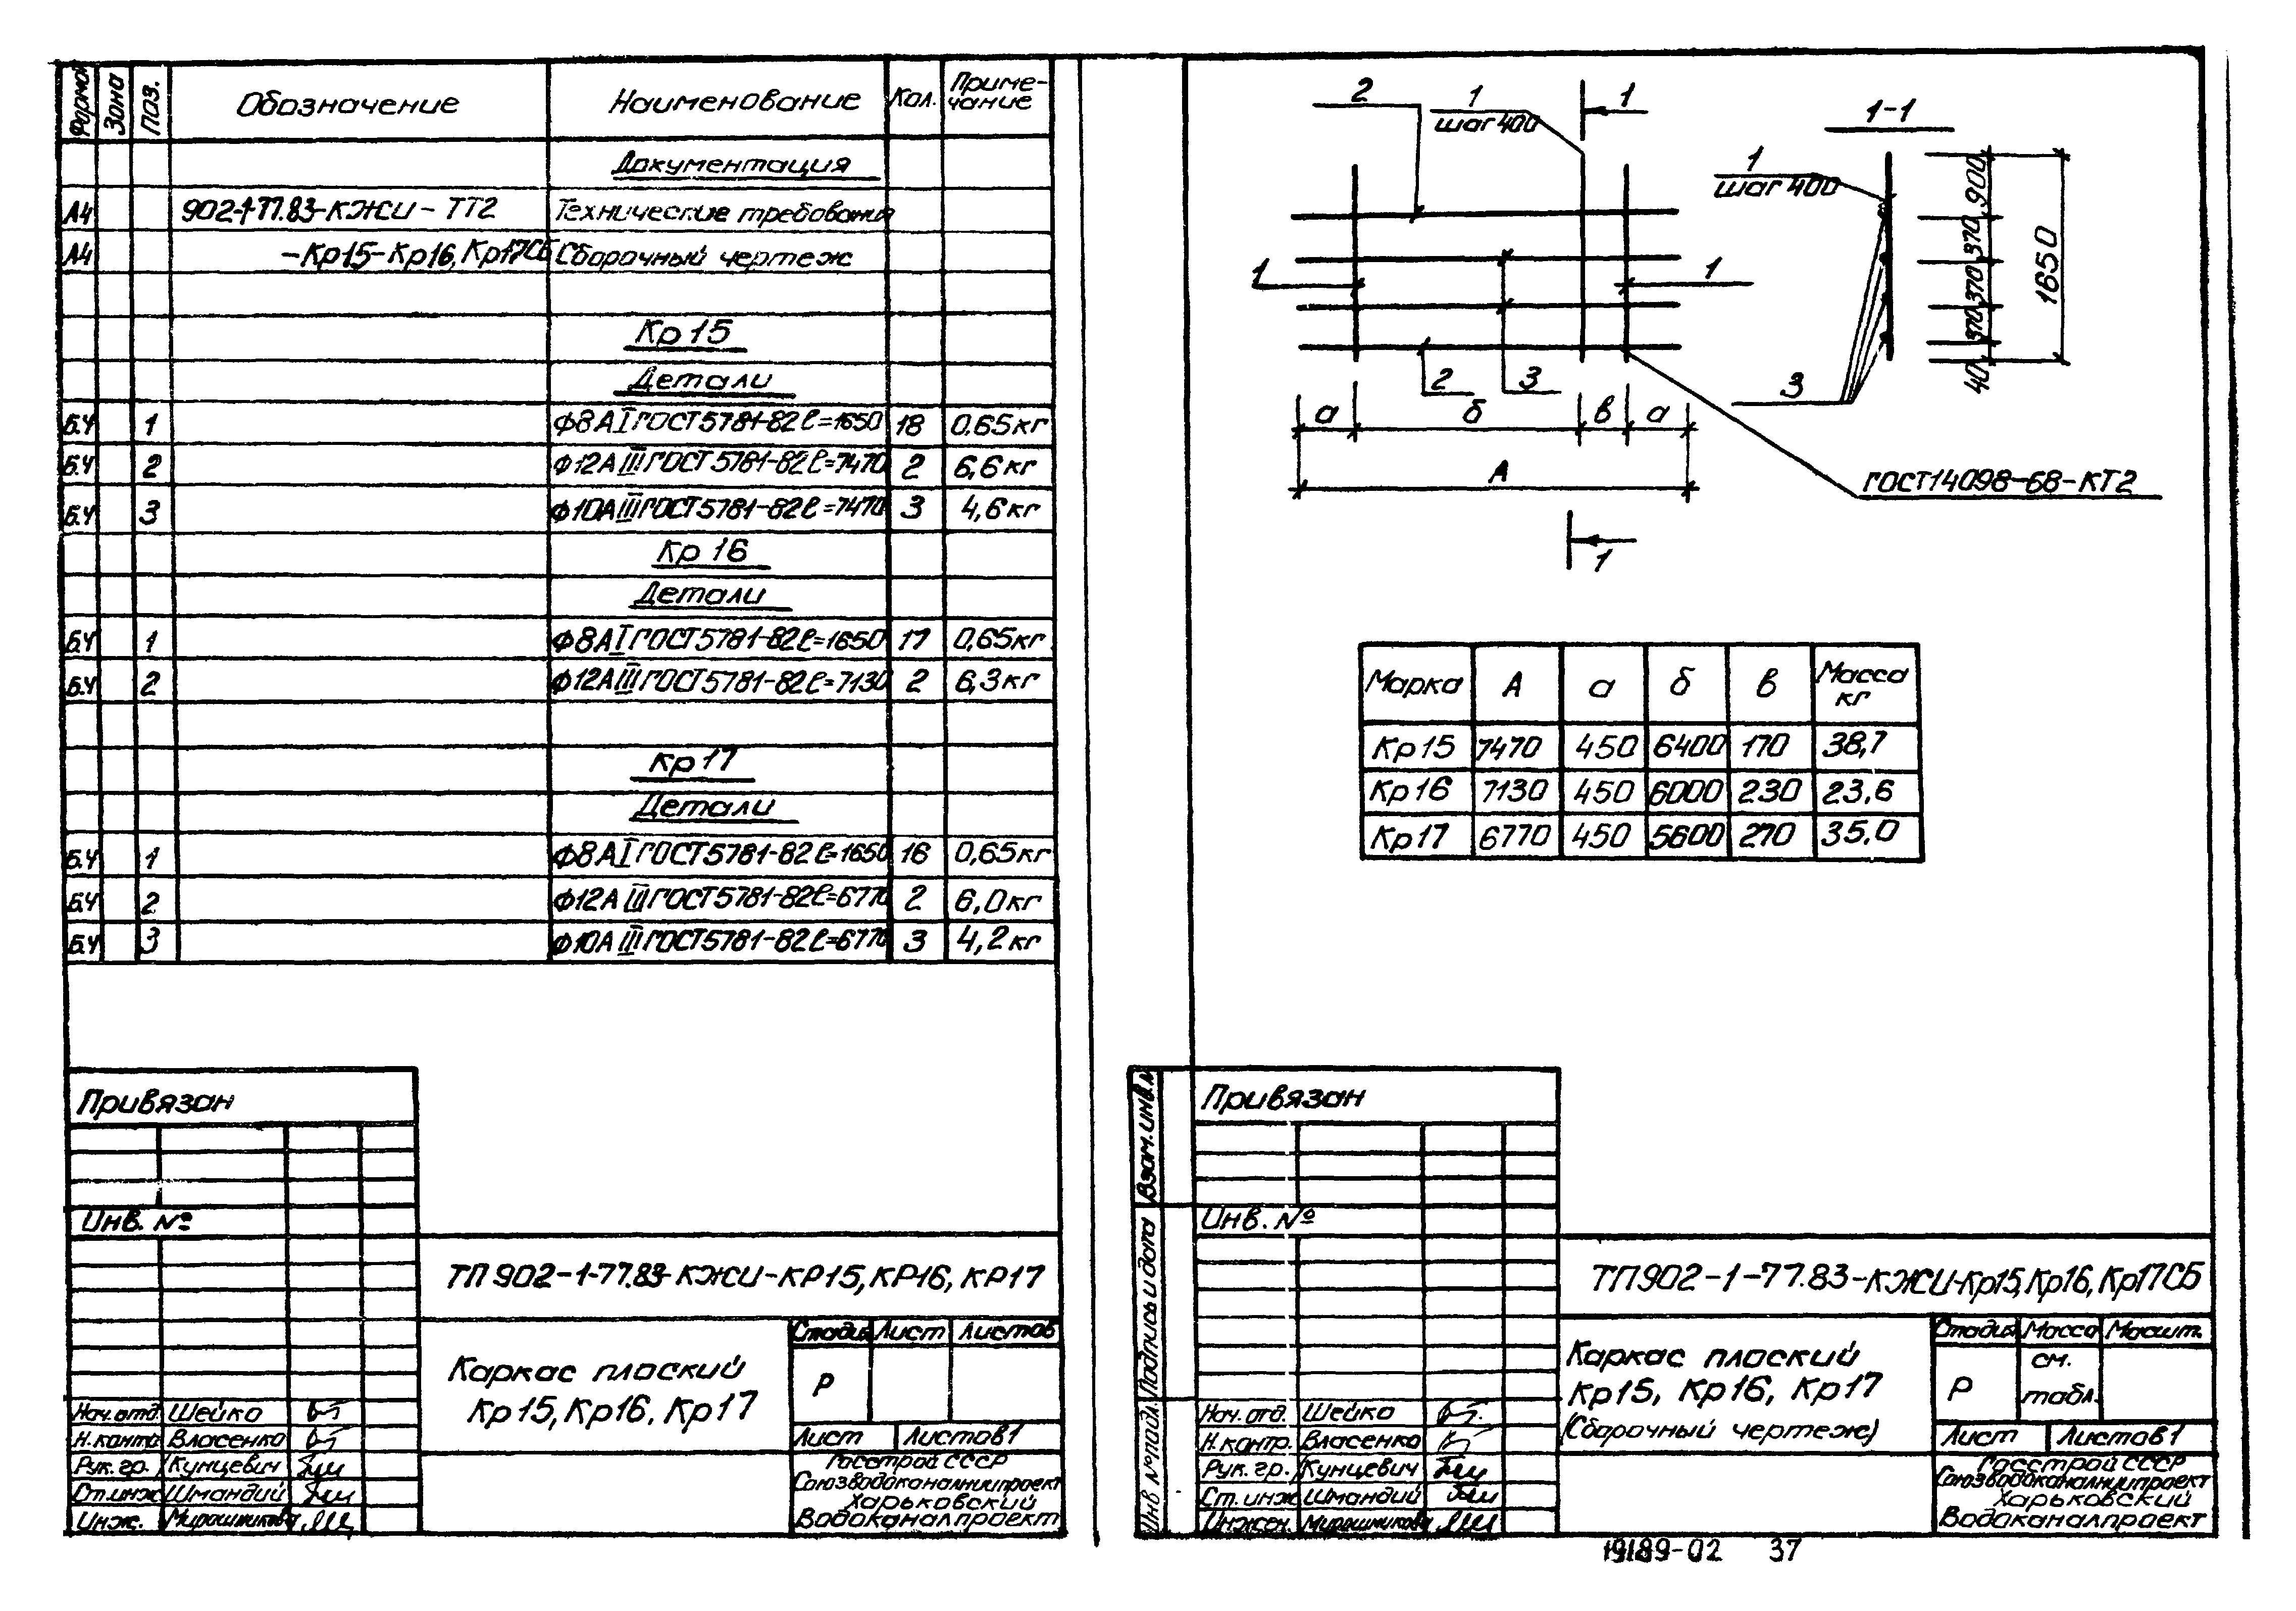 Формат Зона Поз. Обозначение Наименование Кол. Приме-
чание
Документация
А4 902-1-77.83-КЖИ-ТТ2 Технические требования
А4 -Кр15-Кр16,Кр17СБ Сборочный чертеж
Кр15
Детали
Б.Ч 1 Ф8АIГОСТ5781-82ℓ=1650 18 0,65кг
Б.Ч 2 Ф12АIIIГОСТ5781-82ℓ=7470 2 6,6кг
Б.Ч 3 Ф10АIIIГОСТ5781-82ℓ=7470 3 4,6кг
Кр16
Детали
Б.Ч 1 Ф8АIГОСТ5781-82ℓ=1650 17 0,65кг
Б.Ч 2 Ф12АIIIГОСТ5781-82ℓ=7130 2 6,3кг
Кр17
Детали
Б.Ч 1 Ф8АIГОСТ5781-82ℓ=1650 16 0,65кг
Б.Ч 2 Ф12АIIIГОСТ5781-82ℓ=6770 2 6,0кг
Б.Ч 3 Ф10АIIIГОСТ5781-82ℓ=6770 3 4,2кг
Привязан
Инв. №
ТП902-1-77.83-КЖИ-КР15,КР16,КР17
Каркас плоский
Кр15,Кр16,Кр17
Стадия Лист Листов
Р
Лист Листов1
Госстрой СССР
Союзводоканалниипроект
Харьковский
Водоканалпроект
Нач.отд. Шейко
Н.контр Власенко
Рук.гр. Кунцевич
Ст.инж Шмандий
Инж. Мирошникова
2
1
шаг 400
1
1
1
2
3
а б в а
А
1
ГОСТ14098-68-КТ2
1-1
1
шаг 400
3
900
370
370
370
40
1650
Марка А а б в Масса
кг
Кр15 7470 450 6400 170 38,7
Кр16 7130 450 6000 230 23,6
Кр17 6770 450 5600 270 35,0
Взам.инв.№
Подпись и дата
Инв №подл.
Привязан
Инв. №
ТП902-1-77.83-КЖИ-Кр15,Кр16,Кр17СБ
Каркас плоский
Кр15, Кр16, Кр17
(Сборочный чертеж)
Стадия Масса Масшт.
Р см.
табл.
Лист Листов1
Госстрой СССР
Союзводоканалниипроект
Харьковский
Водоканалпроект
Нач.отд. Шейко
Н.контр. Власенко
Рук.гр. Кунцевич
Ст.инж Шмандий
Инжен. Мирошникова
19189-02 37